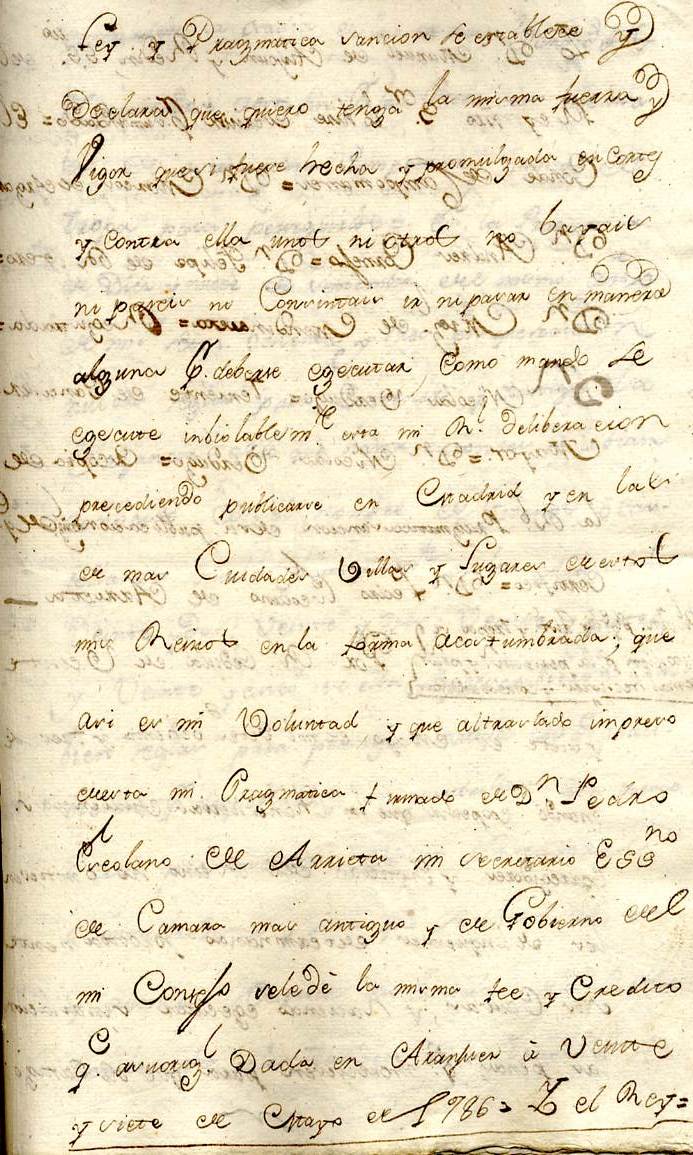 Ley y Pragmatica sancion se establece y
Declara que quiero tenga la misma fuerza y
Vigor que si fuere hecha y promulgada en Cortes
y contra ella unos ni otros no bayais
ni paseis ni Consintais ir ni pasar en manera
alguna q. deberse egecutar, como mando se
egecute inbiolablem.te esta mi Rl. deliberacion
precediendo publicarse en Madrid y en las
de mas Cuidades Villas y Lugares de estos
mis Reinos en la forma acostumbrada; que
asi es mi Voluntad y que al traslado impreso
de esta mi Pragmatica firmado de Dn Pedro
Escolano de Arrieta mi secretario Essno
de Camara mas antiguo y de Gobierno del
mi Consejo sele dè la misma fee y Credito
q.e asu origl Dada en Aranjuez à Veinte
y siete de Mayo de 1786 = Yo el Rey =